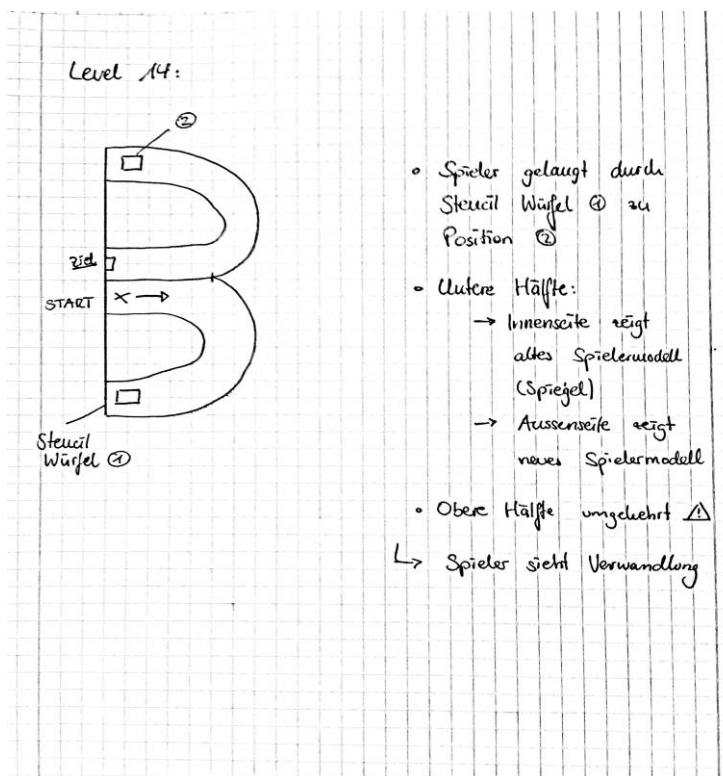 Level 14:
②
Ziel
START
Stencil
Würfel ①
• Spieler gelangt durch
Stencil Würfel ① zu
Position ②
• Untere Hälfte:
→ Innenseite zeigt
altes Spielermodell
(Spiegel)
→ Aussenseite zeigt
neues Spielermodell
• Obere Hälfte umgekehrt ⚠
↳ Spieler sieht Verwandlung